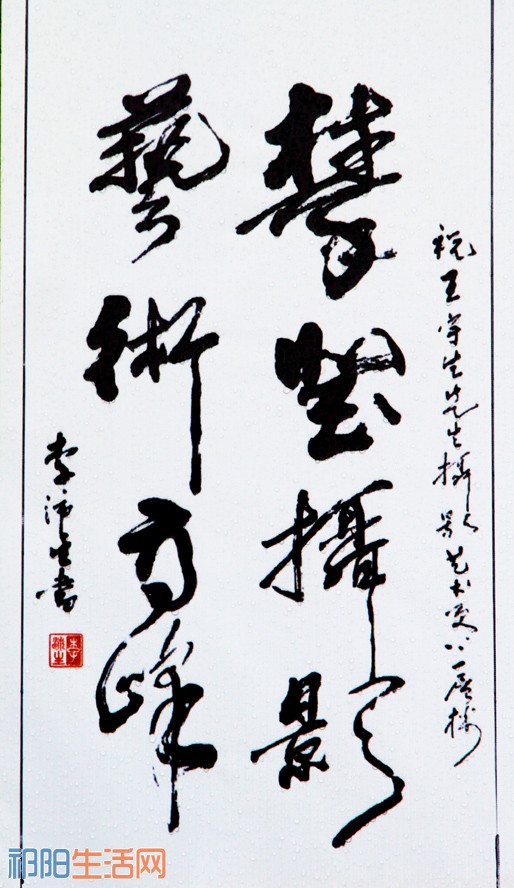 祝王生先生攝影艺术更上一层楼
攀登攝影
藝術高峰
李沛生書
祁阳生活网